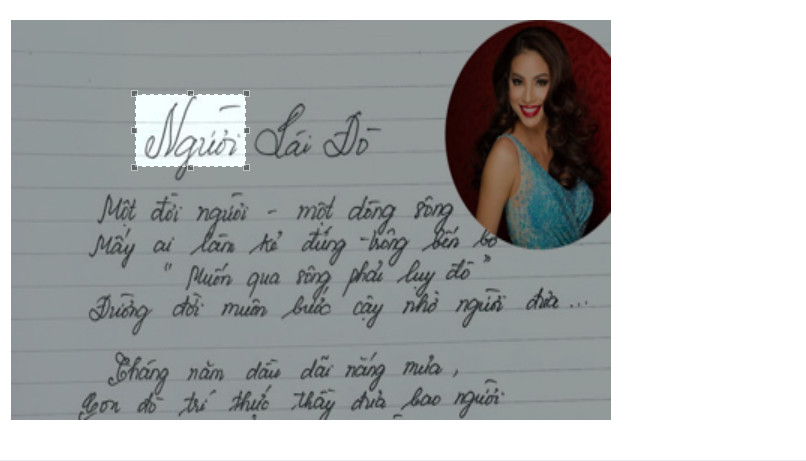 Người Lái Đò
Một đời người - một dòng sông
Mấy ai làm kẻ đứng trông bến bờ
" Muốn qua sông phải luỵ đò "
Đường đời muôn bước cậy nhờ người đưa ...
Tháng năm dầu dãi nắng mưa,
Con đò trí thức thầy đưa bao người